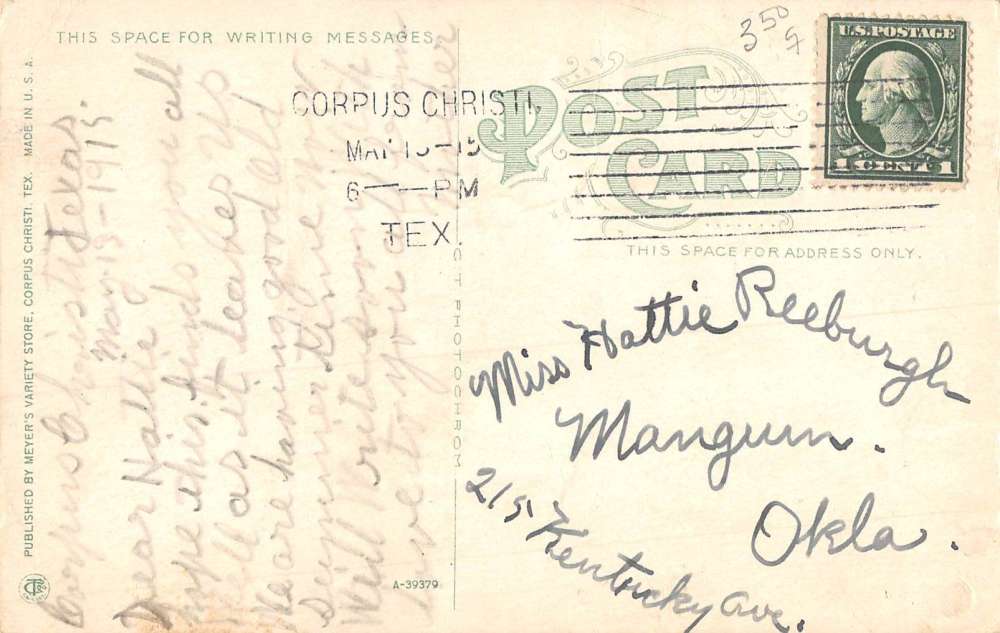 THIS SPACE FOR WRITING MESSAGES
350
CORPUS CHRISTI,
MAY 13-15
6 — PM
TEX.
POST
CARD
U.S. POSTAGE
1 CENT 1
THIS SPACE FOR ADDRESS ONLY.
Miss Hattie Reeburgh
Mangum.
Okla.
215 Kentucky ave.
Corpus Christi Texas.
May 13-1915
Dear Hattie
hope this finds you all
well as it leaves us
We are having good old
summer time now
Will write some
love to you
PUBLISHED BY MEYER'S VARIETY STORE, CORPUS CHRISTI, TEX. MADE IN U.S.A.
CT PHOTOCHROM
A-39379